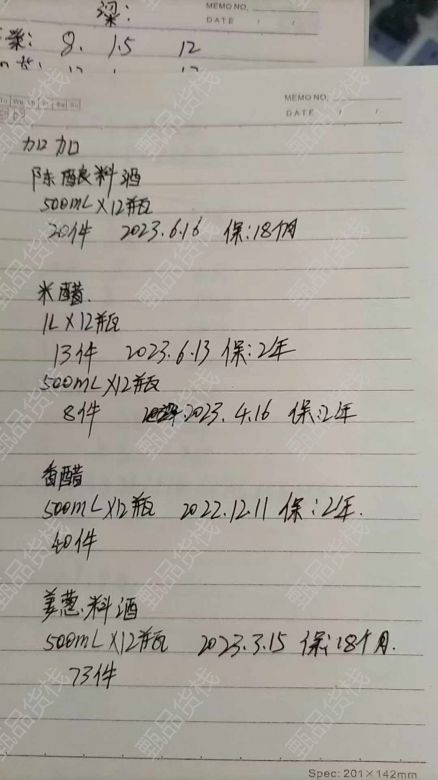 深:
8. 1.5 12
MEMO NO.
DATE / /
MEMO NO.
DATE / /
加加
陈酿料酒
500mL×12瓶
20件 2023.6.16 保:18个月
米醋.
1L×12瓶
13件 2023.6.13 保:2年
500mL×12瓶
8件 2023.4.16 保:2年
香醋
500mL×12瓶 2022.12.11 保:2年.
40件
姜葱料酒
500mL×12瓶 2023.3.15 保:18个月.
73件
Spec: 201×142mm
甄品货栈